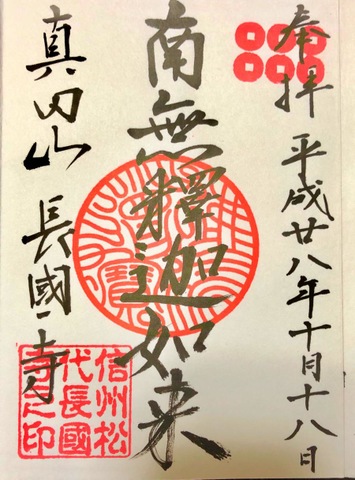 奉拝 平成廿八年十月十八日
南無釋迦如来
真田山 長國寺
信州松
代長國
寺之印